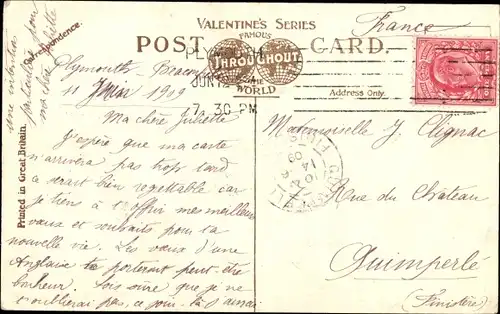 VALENTINE'S SERIES
FAMOUS
THROUGHOUT
THE
WORLD
POST CARD.
France
Correspondence.
Address Only.
Printed in Great Britain.
PLYMOUTH
JUN 12
7.30 PM
Plymouth,
11 Juin 1909
Ma chère Juliette
J'espère que ma carte
n'arrivera pas trop tard
ce serait bien regrettable car
je tiens à t'offrir mes meilleurs
vœux et souhaits pour ta
nouvelle vie. Les vœux d'une
Anglaise te porteront peut être
bonheur. Sois sûre que je ne
t'oublierai pas, ce jour-là. J'aurai
une intention
particulière pour
ma chère Juliette
Mademoiselle J. Clignac
Rue du Château
Quimperlé
(Finistère)